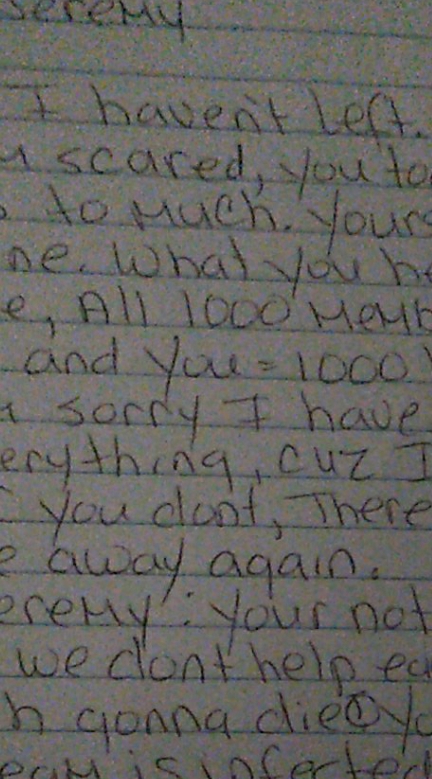 Jeremy
I haven't left.
scared, you to
to much. yours
ne. What you he
e, All 1000 Memb
and you = 1000
sorry I have
erything, cuz I
you dont, There
e away again.
eremy: your not
we dont help ea
h gonna die Yo
eam is infected